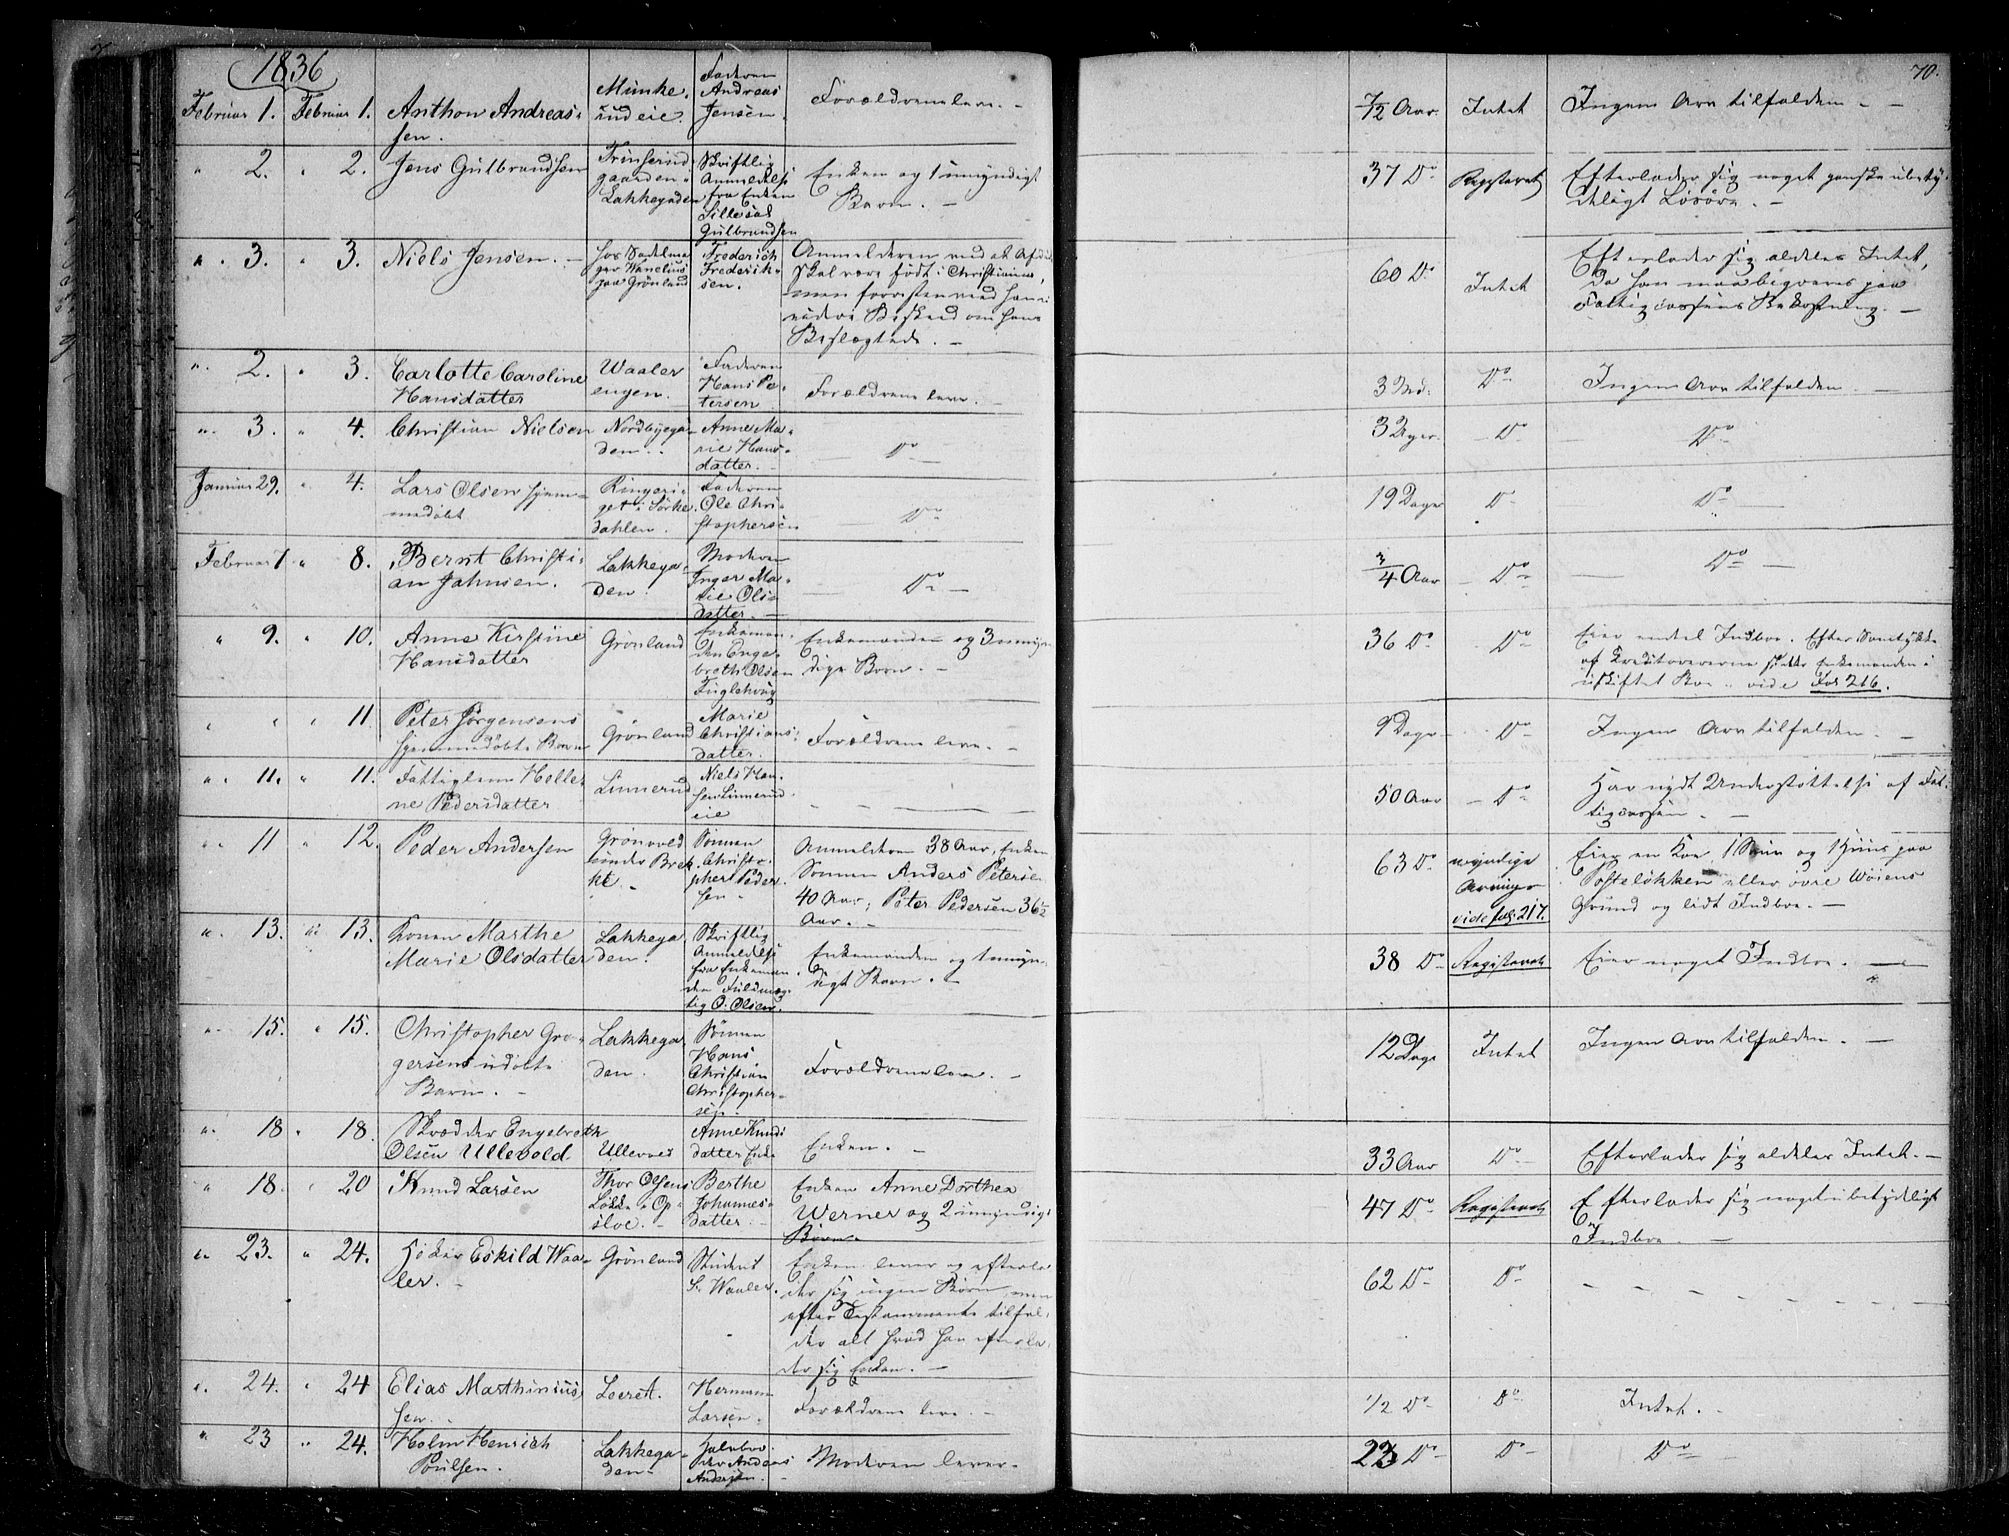 1836
70.
Februar 1. Februar 1. Anthon Andreas-
sen.
Munke-
rud eie.
Faderen
Andreas
Jensen.
Forældrene leve. -
1/2 Aar. Intet Ingen Arv tilfalden - -
" 2. " 2. Jens Gulbrandsen
gaarden i
Lakkegaden
Skriftlig
Anmeldelse
fra Enken
Gulbrandsen
Enken og 1 umyndigt
Barn. -
37 Do Registeret Efterlader sig noget ganske ubety-
deligt Løsøre. -
" 3. " 3. Niels Jensen. -
hos Sadelma-
ger Wanelius
paa Grønland
Frederich
Frederik-
sen.
Anmelderen veed at Afdøde
skal være født i Christiania,
men forresten veed han ei
videre Besked om hans
Beslægtede. -
60 Do Intet
Efterlader sig aldeles Intet,
da han maa begraves paa
Fattigcassens Bekostning. -
" 2. " 3. Carlotte Caroline
Hansdatter
Waaler
engen.
Faderen
Hans Pe-
tersen
Forældrene leve. -
3 Md: Do Ingen Arv tilfalden. -
" 3. " 4. Christian Nielsen
Nordbyega-
den.
Anne Ma-
rie Hans-
datter. -
Do
3 Uger. Do Do
Januar 29. " 4. Lars Olsen hjem-
medøbt
Ringeri-
get i Sørke-
dahlen.
Faderen
Ole Chri-
stophersen
Do
19 Dage Do Do
Februar 7 " 8. Bernt Christi-
an Jahnsen.
Lakkega-
den.
Moderen
Inger Ma-
rie Ols-
datter. -
Do -
3/4 Aar Do Do
" 9. " 10. Anne Kirstine
Hansdatter
Grønland
Enkeman-
den Enge-
breth Olsen
Fuglehaug
Enkemanden og 3 umyn-
dige Børn. -
36 Do Do Eier endel Indboe. Efter Samtykke
af Kreditorerne sidder Enkemanden i
uskiftet Boe. vide Fol 216.
" " " 11. Peter Jørgensens
hjemmedøbte Barn
Grønland
Marie
Christians-
datter.
Forældrene leve. -
9 Dage Do Ingen Arv tilfalden. -
" 11. " 11. Fattiglem Helle-
ne Pedersdatter
Linnerud
Niels Han-
sen Linnerud
eie
50 Aar Do Har nydt Understøttelse af Fat-
tigcassen. -
" 11 " 12. Peder Andersen
Grønvold
under Brek-
ke. -
Sønnen
Christo-
pher Peder-
sen -
Anmelderen 38 Aar, Enken
Sønnen Anders Petersen
40 Aar; Peter Pedersen 36 1/2
Aar. -
63 Do myndige
Arvinger
vide fol: 217.
Eier en Koe, 1 Sviin og 1 Huus paa
Posteløkken eller øvre Wøiens
Grund og lidt Indboe. -
" 13. " 13. Konen Marthe
Marie Olsdatter
Lakkega-
den.
Skriftlig
Anmeldelse
fra Enkeman-
den Fuldmæg-
tig O. Olsen.
Enkemanden og 1 umyn-
digt Barn. -
38 Do Registeret Eier noget Indboe. -
" 15. " 15. Christopher Gre-
gersens udøbte
Barn. -
Lakkega-
den.
Sønnen
Hans
Christian
Christopher-
sen
Forældrene leve. -
12 Dage Intet Ingen Arv tilfalden. -
" 18 " 18. Skrædder Engebreth
Olsen Ullevold
Ullevold
Anne Knuds
datter Enke
Enken. -
33 Aar Do Efterlader sig aldeles Intet. -
" 18. " 20 Knud Larsen
Thor Olsens
Løkke i Op-
sloe. -
Berthe
Johannes-
datter. -
Enken Anne Dorthea
Werner og 2 umyndige
Børn.
47 Do Registeret Efterlader sig noget ubetydeligt
Indboe. -
" 23. " 24. Høker Eskild Waa-
ler. -
Grønland
Student
Waaler.
Enken lever og efterla-
der sig ingen Børn, men
efter Testamente tilfal-
der alt hvad han efterla-
der sig Enken. -
62 Do Do
" 24. " 24 Elias Marthinius
sen.
Leeret.
Herman
Larsen.
Forældrene leve. -
1/2 Do Do Intet. -
" 23 " 24. Holm Henrich
Poulsen.
Lakkega-
den -
Andreas
Andersen.
Moderen lever. -
23 Do Do Do